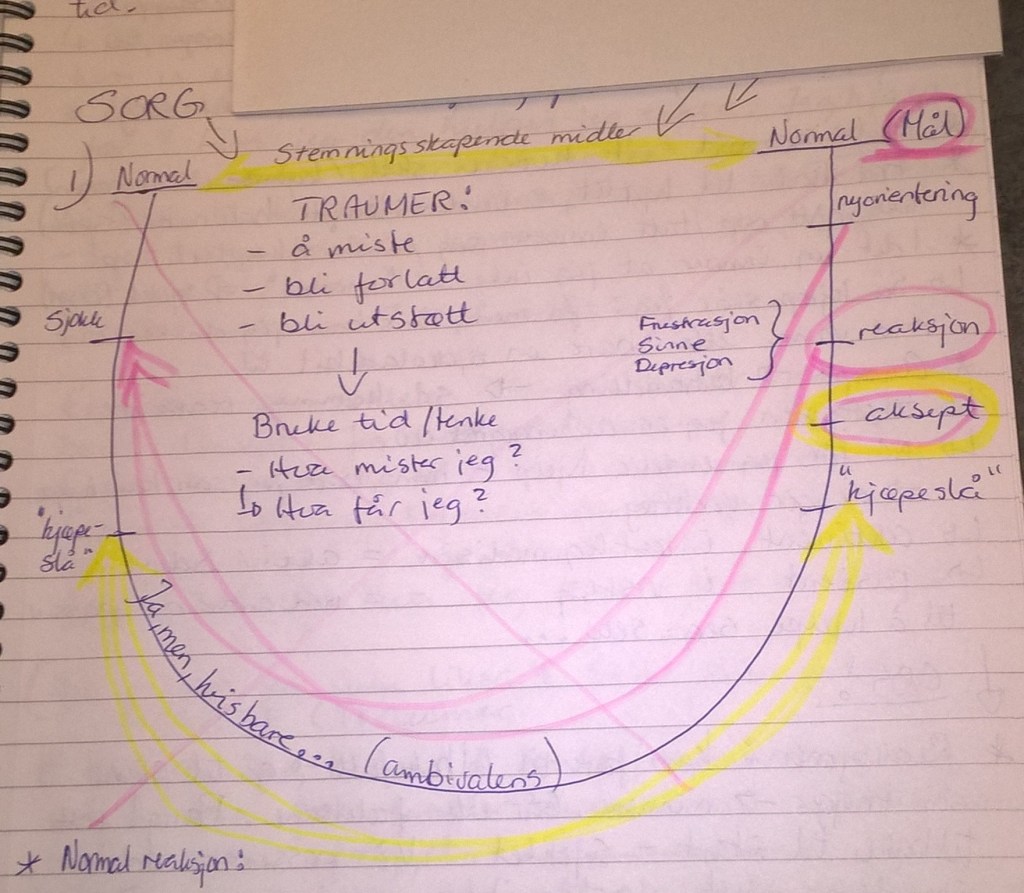 tid.
SORG
Stemningsskapende midler
Normal (Mål)
1) Normal
nyorientering
TRAUMER:
- å miste
- bli forlatt
- bli utstøtt
Sjokk
Frustrasjon
Sinne
Depresjon
reaksjon
aksept
Bruke tid/tenke
- Hva mister jeg?
↳ Hva får jeg?
"kjæpeslå"
"kjæpe-
slå"
Ja, men, hvis bare... (ambivalens)
* Normal reaksjon: